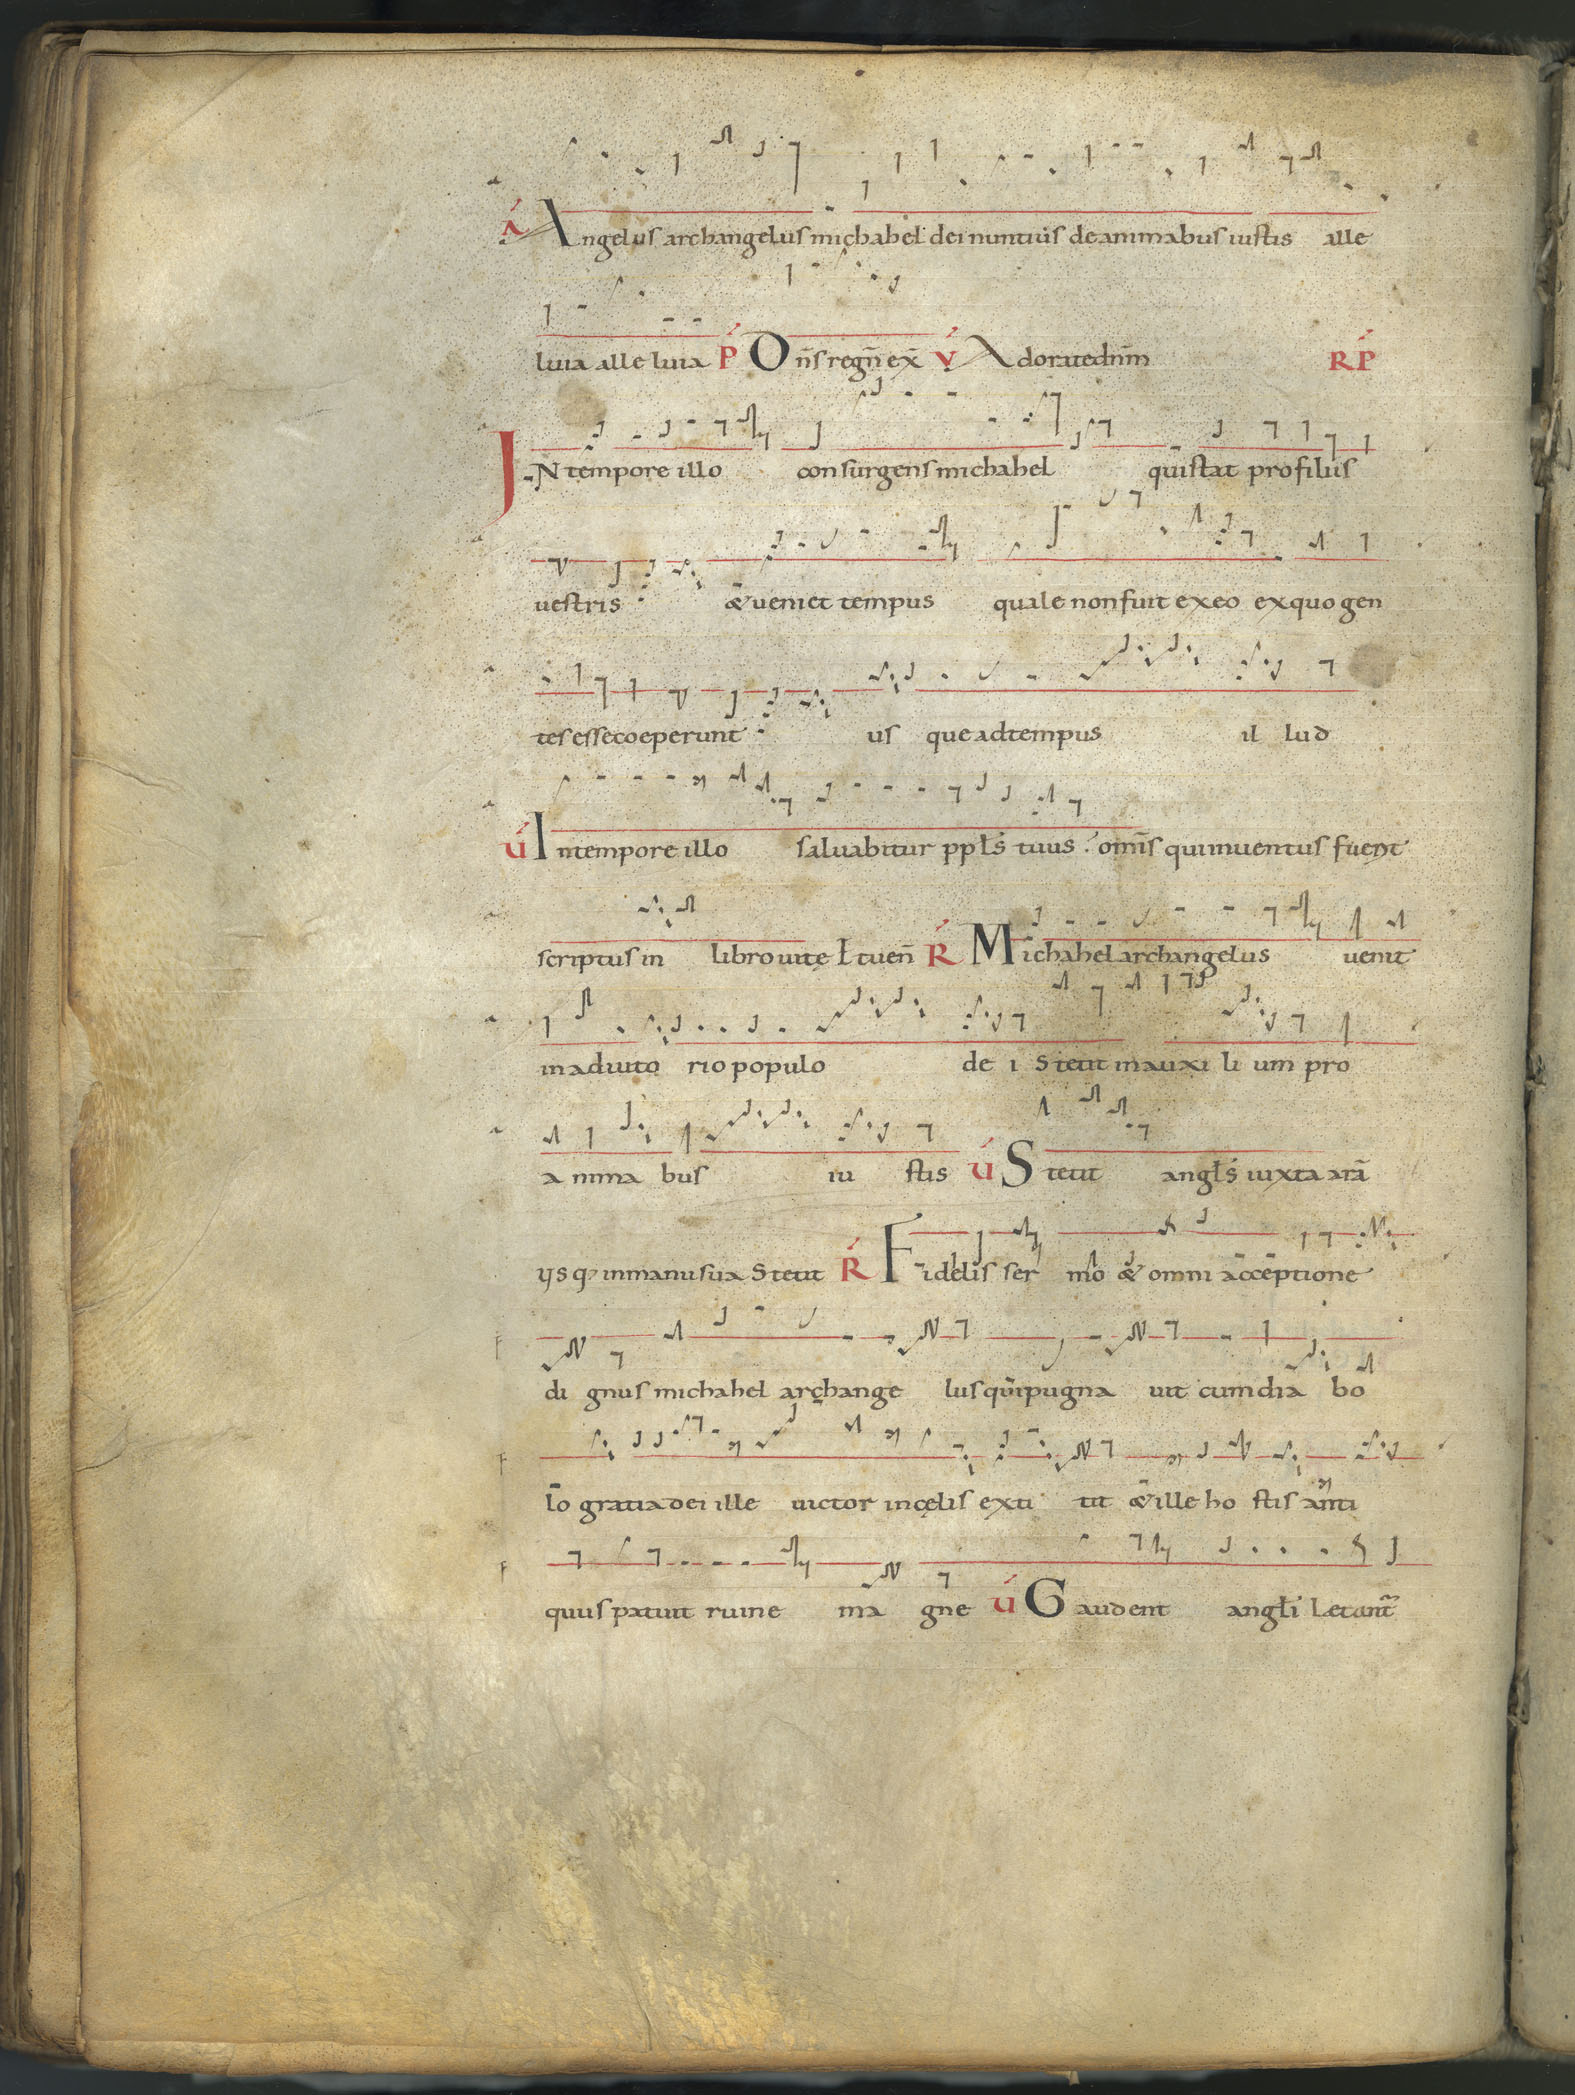 A Angelus archangelus michahel dei nuntius de animabus iustis alle
luia alle luia P Om̄s regn̄ ex̄ V Adorate dnm̄ RP
IN tempore illo consurgens michahel qui stat pro filiis
uestris & ueniet tempus quale non fuit ex eo ex quo gen
tes esse coeperunt us que ad tempus il lud
V In tempore illo saluabitur ppl̄s tuus . om̄s qui inuentus fuerit
scriptus in libro uitę Et uen̄ R Michahel archangelus uenit
in adiuto rio populo de i Stetit in auxi li um pro
a nima bus iu stis V Stetit angl̄s iuxta arā
In manu sua Stetit R Fidelis ser mo & omni acceptione
di gnus michahel archange lus qui pugna uit cum dia bo
lo gratia dei ille uictor in cęlis exti tit & ille ho stis anti
quus patuit ruine ma gne V Gaudent angl̄i Letant̄